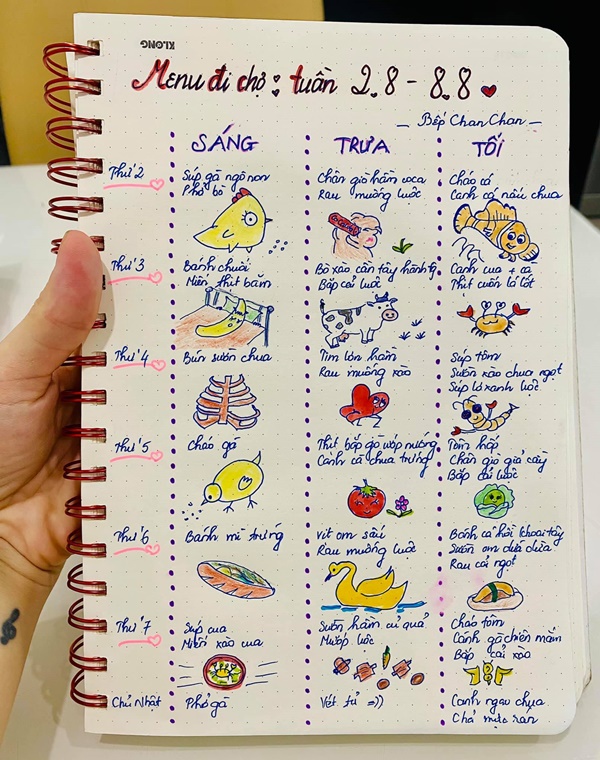 KLONG
Menu đi chợ: tuần 2.8 - 8.8
_ Bếp Chan Chan _
SÁNG TRƯA TỐI
Thứ 2
Súp gà ngô non
Phở bò
Chân giò hầm coca
Rau muống luộc
Cháo cá
Canh cá nấu chua
Thứ 3
Bánh chuối
Miến thịt băm
Bò xào cần tây hành tây
Bắp cải luộc
Canh cua + cà
Thịt cuốn lá lốt
Thứ 4
Bún sườn chua
Tim lợn hầm
Rau muống xào
Súp tôm
Sườn xào chua ngọt
Súp lơ xanh luộc
Thứ 5
Cháo gà
Thịt bắp giò ướp nướng
Canh cà chua trứng
Tôm hấp
Chân giò giả cầy
Bắp cải luộc
Thứ 6
Bánh mì trứng
Vịt om sấu
Rau muống luộc
Bánh cá hồi khoai tây
Sườn om dứa dừa
Rau cải ngọt
Thứ 7
Súp cua
Miến xào cua
Sườn hầm củ quả
Mướp luộc
Cháo tôm
Cánh gà chiên mắm
Bắp cải xào
Chủ Nhật
Phở gà
Vét tủ =))
Canh ngao chua
Chả mực rán